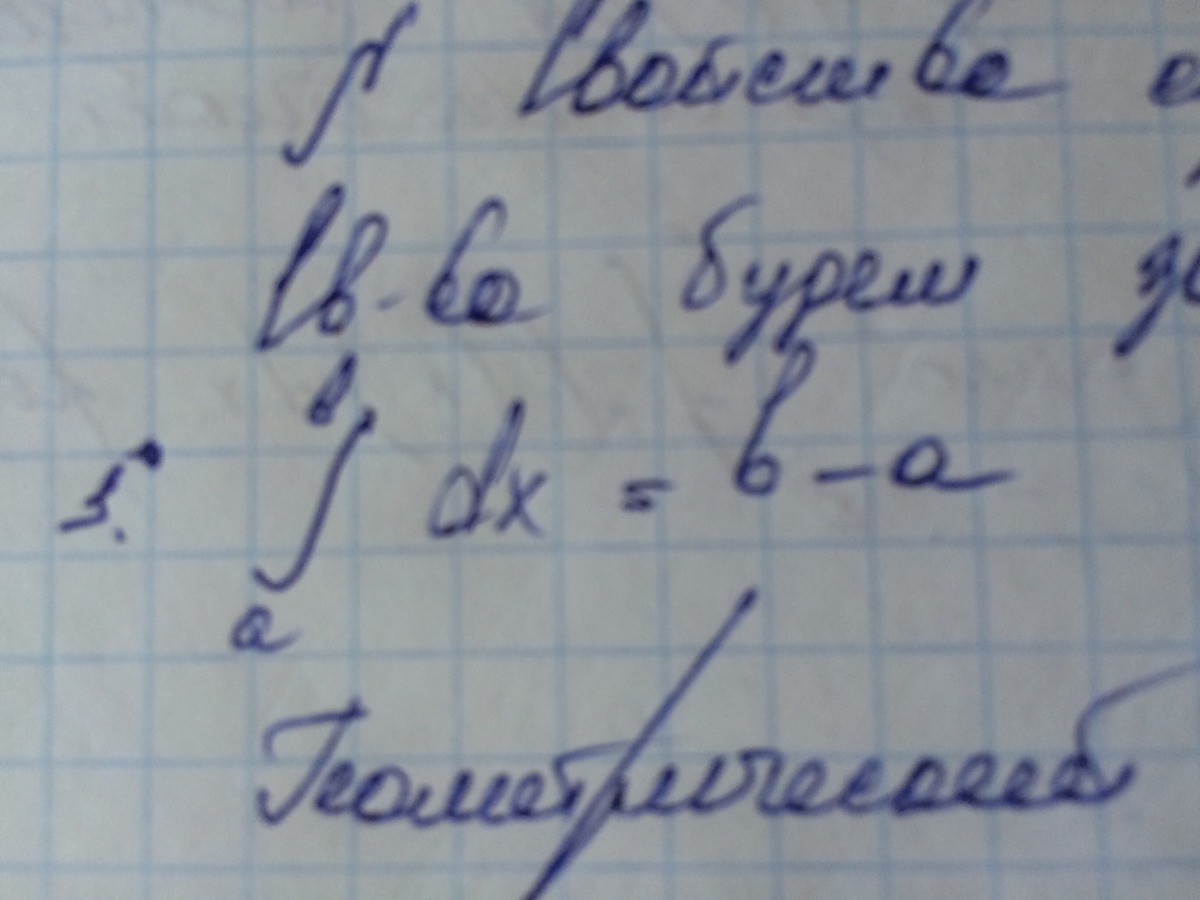 ∫ Свойства о
Св-ва будем
1. ∫ₐᵇ dx = b - a
Геометрический